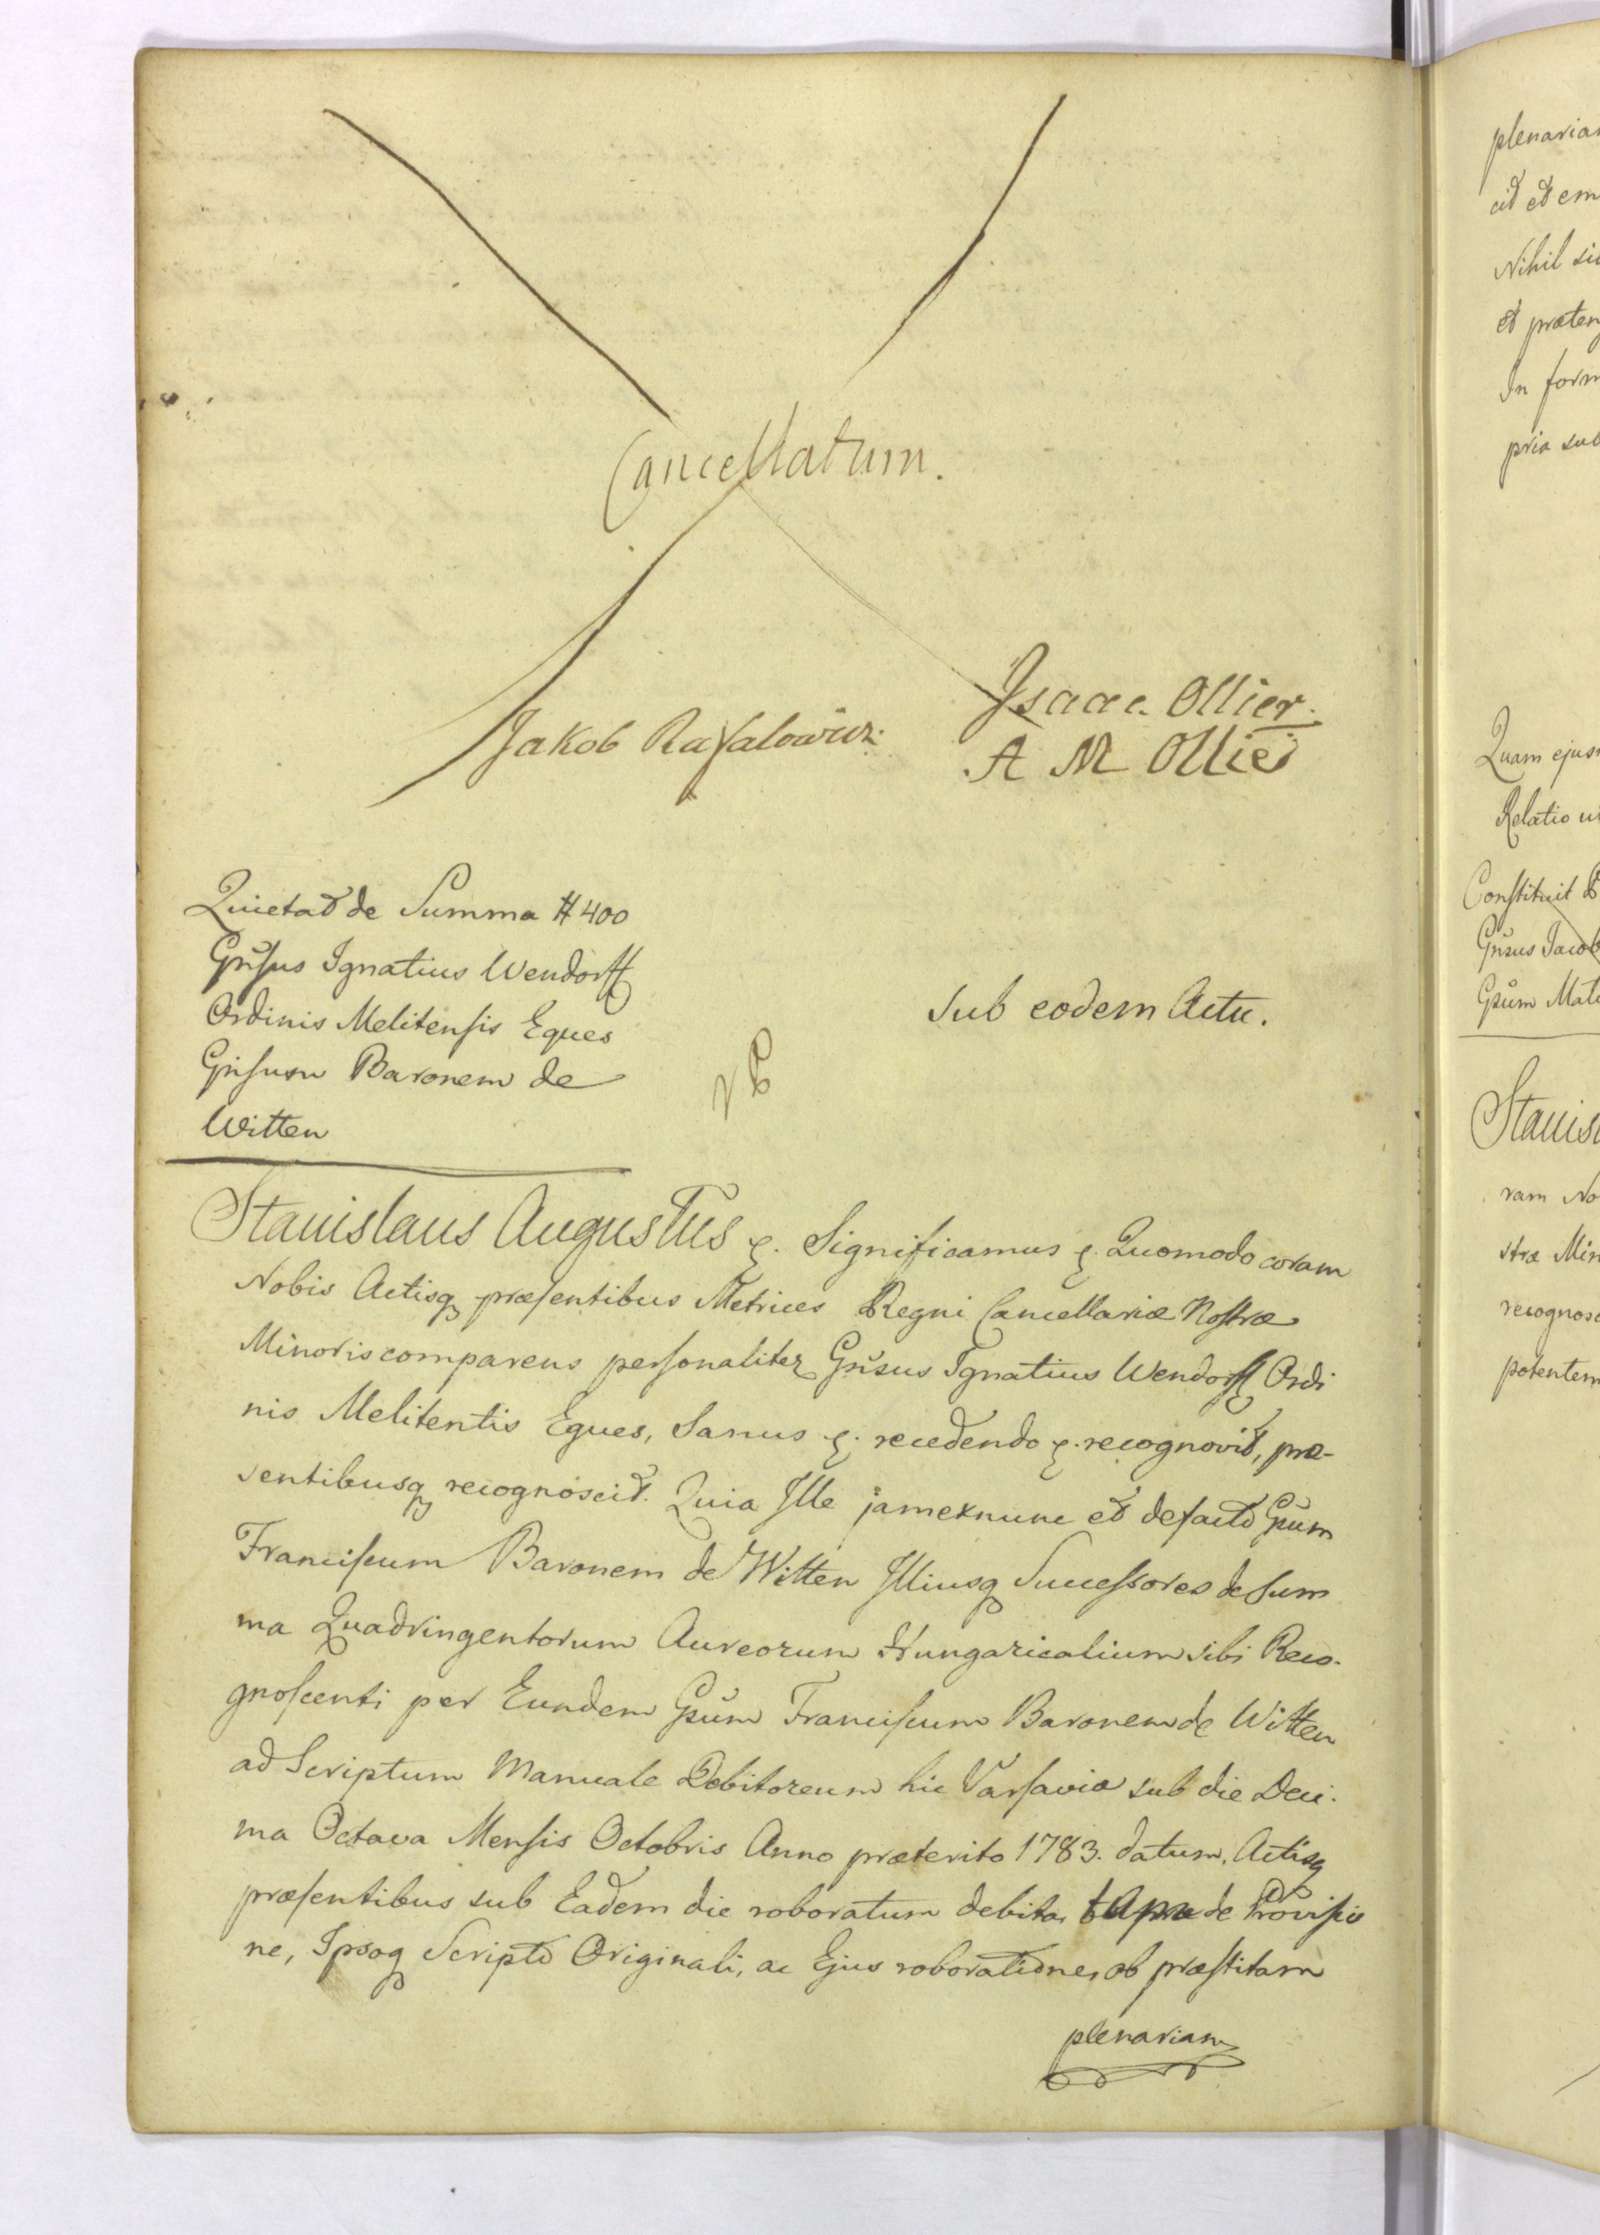 Cancellatum.
Jakob Rafalowicz
Isaac Ollier.
A M Ollier
Quietat de Summa # 400
Gnsus Ignatius Wendorff
Ordinis Melitensis Eques
Gnsum Baronem de
Witten
Sub eodem Actu.
Stanislaus Augustus &. Significamus &. Quomodo coram
Nobis Actisq præsentibus Metrices Regni Cancellariæ Nostræ
Minoris comparens personaliter Gnsus Ignatius Wendorff Ordi
nis Melitentis Eques, Sanus &. recedendo &. recognovit, præ-
sentibusq recognoscit. Quia Ille jamexnunc et defacto Gnum
Franciscum Baronem de Witten Illiusq Successores de Sum
ma Quadringentorum Aureorum Hungaricalium sibi Reco-
gnoscenti per Eundem Gnum Franciscum Baronem de Witten
ad Scriptum Manuale Debitoreum hic Varsaviæ sub die Deci-
ma Octava Mensis Octobris Anno præterito 1783. datum, Actisq
præsentibus sub Eadem die roboratum debita, de Provisio
ne, Ipsoq Scripto Originali, ac Ejus roboratione, ob præstitam
plenariam
plenaria
cit et em
Nihil si
et præten
In form
pria sub
Quam ejus
Relatio
Constituit
Gnsus Jacob
Gnum Mat
Stanis
ram No
stræ Min
recognos
potentem